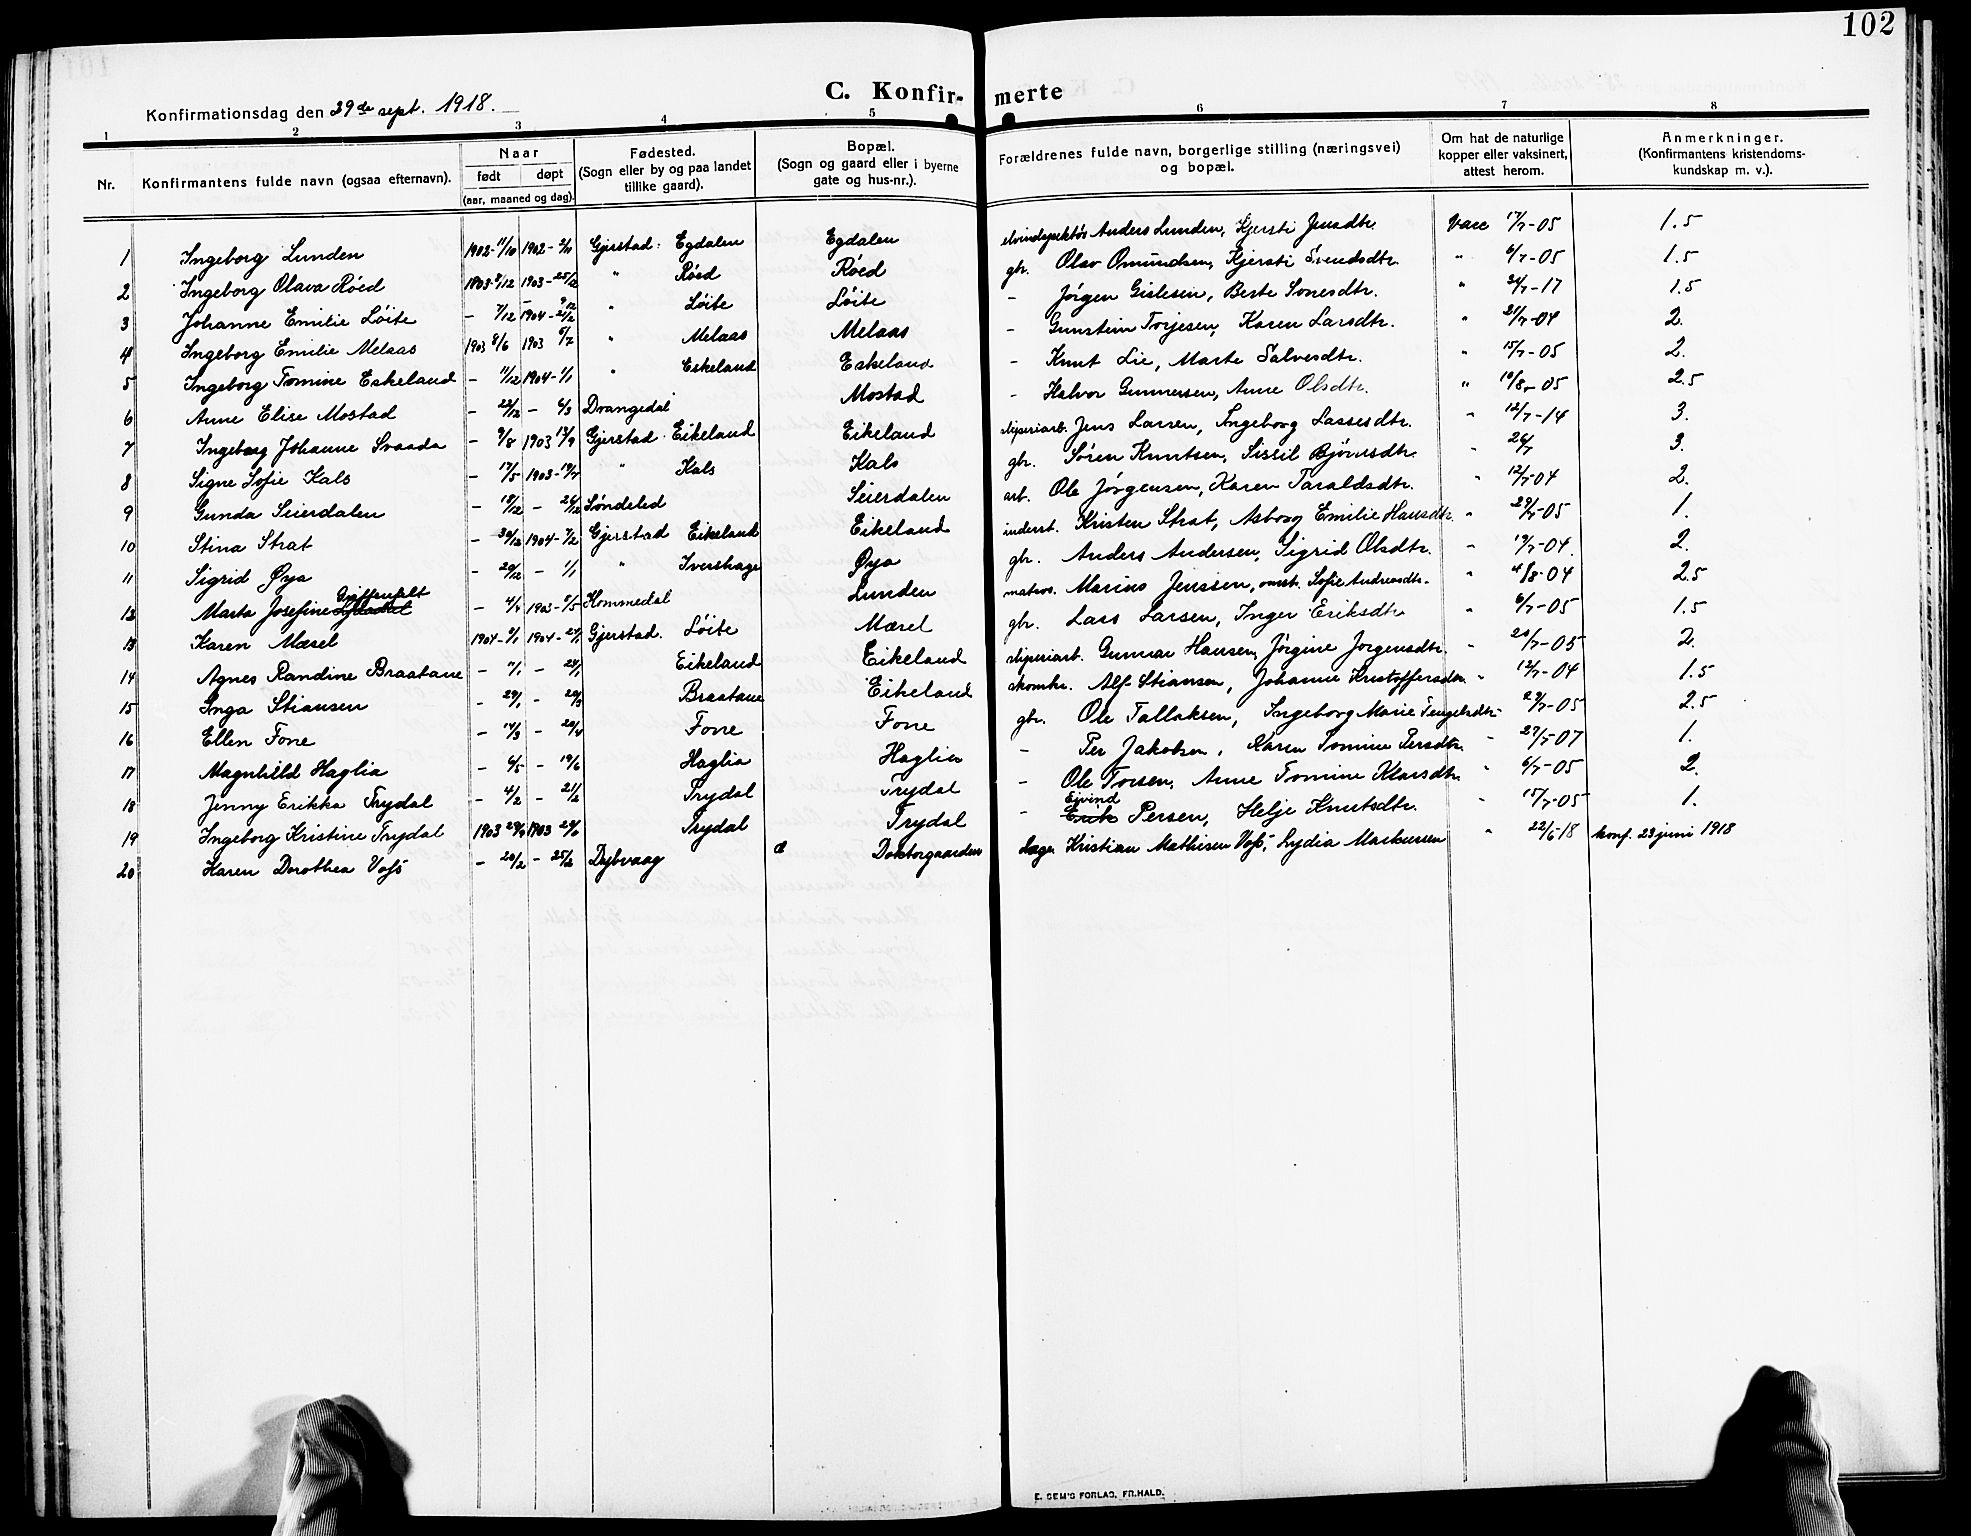 102
C. Konfirmerte
Konfirmationsdag den 29de sept. 1918.
1 2 3 4 5 6 7 8
Nr. Konfirmantens fulde navn (ogsaa efternavn). Naar født døpt (aar, maaned og dag). Fødested. (Sogn eller by og paa landet tillike gaard). Bopæl. (Sogn og gaard eller i byerne gate og hus-nr.). Forældrenes fulde navn, borgerlige stilling (næringsvei) og bopæl. Om hat de naturlige kopper eller vaksinert, attest herom. Anmerkninger. (Konfirmantens kristendoms-kundskap m. v.).
1 Ingeborg Lunden 1902-11/10 1902- Gjerstad: Egdalen Egdalen Anders Lunden, Kjersti Jensdtr. Vacc 17/7-05 1.5
2 Ingeborg Olava Røed 1903 1903-25/12 " Røed Røed gbr. Olav Omundsen, Kjersti Svendsdtr. " 6/7-05 1.5
3 Johanne Emilie Løite - 7/12 1904-21/2 " Løite Løite - Jørgen Gislesen, Berte Sonesdtr. " 24/7-17 1.5
4 Ingeborg Emilie Melaas 1903 8/6 1903 5/7 " Melaas Melaas - Gunstein Torjesen, Karen Larsdtr. " 21/7-04 2.
5 Ingeborg Tomine Eskeland - 11/12 1904-1/1 " Eskeland Eskeland - Knut Lie, Marte Salvesdtr. " 15/7-05 2.
6 Anne Elise Mostad - 22/12 - 6/3 Drangedal Mostad - Halvor Gunnersen, Anne Olsdtr. " 10/8-05 2.5
7 Ingeborg Johanne Svaada - 9/8 1903 13/9 Gjerstad Eikeland Eikeland sliperiarb. Jens Larsen, Ingeborg Lassesdtr. " 12/7-14 3.
8 Signe Sofie Kals - 17/5 1903-19/7 " Kals Kals gbr. Søren Knutsen, Sissil Bjørnsdtr. " 26/7 3.
9 Gunda Seierdalen - 18/12 - 26/12 Søndeled Seierdalen arb. Ole Jørgensen, Karen Taraldsdtr. " 12/7-04 2.
10 Stina Strat - 30/12 1904-7/2 Gjerstad Eikeland Eikeland inderst. Kristen Strat, Asborg Emilie Hansdtr. " 29/7-05 1.
11 Sigrid Øya - 20/12 - 1/1 " Ivershage Øya gbr. Anders Andersen, Sigrid Olsdtr. " 19/7-04. 2.
12 Marta Josefine Griffenfelt - 4/4 1903-5/5 Kommedal Lunden matros. Marius Jenssen, Sofie Andreasdtr. " 4/8-04 2.5
13 Karen Mæsel 1904-9/1 1904-24/1 Gjerstad. Løite Mæsel gbr. Lars Larsen, Inger Eriksdtr. " 6/7-05 1.5
14 Agnes Randine Braatane - 7/1 - 24/1 Eikeland Eikeland sliperiarb. Gunnar Hansen, Jørgine Jørgensdtr. " 20/7-05 2.
15 Inga Stiansen - 29/1 - 20/3 Braatane Eikeland skomkr. Alf Stiansen, Johanne Kristoffersdtr. " 12/7-04 1.5
16 Ellen Fone - 14/3 - 20/4 Fone Fone gbr. Ole Tallaksen, Ingeborg Marie Tengelsdtr. " 29/7-05 2.5
17 Magnhild Haglia - 6/5 - 19/6 Haglia Haglia - Per Jakobsen, Karen Tomine Persdtr. " 27/7-07 1.
18 Jenny Erikka Trydal - 4/2 - 21/2 Trydal Trydal - Ole Torsen, Anne Tomine Klarsdtr. " 6/7-05 2.
19 Ingeborg Kristine Trydal 1903 29/4 1903 24/6 Trydal Trydal - Eivind Persen, Helje Knutsdtr. " 15/7-05 1.
20 Karen Dorothea Voss - 20/2 - 25/2 Dybvaag Doktorgaarden læge Kristian Mathisen Voss, Lydia Markussen " 22/6-18 konf. 23 juni 1918
E. SEM'S FORLAG, FR.HALD.